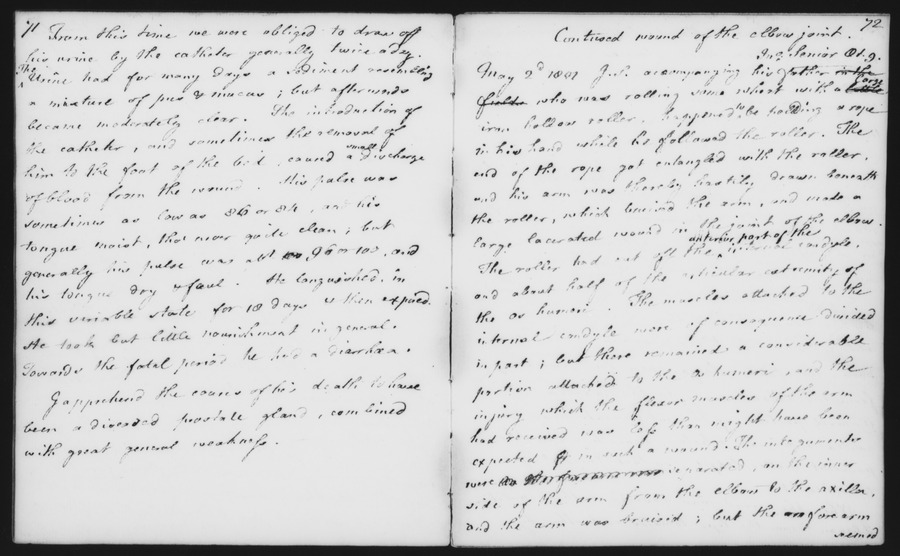 71
From this time we were obliged to draw off
his urine by the catheter generally twice a day.
The Urine had for many days a sediment resembling
a mixture of pus & mucus ; but afterwards
became moderately clear. The introduction of
the catheter, and sometimes the removal of
him to the foot of the bed, caused a small discharge
of blood from the wound. His pulse was
sometimes as low as 86 or 84, and his
tongue moist, tho' never quite clean ; but
generally his pulse was abt 96 or 100, and
his tongue dry & foul. He languished in
this variable state for 18 days & then expired.
He took but little nourishment in general.
Towards the fatal period he had a diarrhœa.
I apprehend the causes of his death to have
been a diseased prostate gland, combined
with great general weakness.
72
Contused wound of the elbow joint.
Senior Æt. 9.
May 2d 1801 accompanying his father in the
fields who was rolling some wheat with a large
iron hollow roller, happened to be holding a rope
in his hand while he followed the roller. The
end of the rope got entangled with the roller,
and his arm was thereby hastily drawn beneath
the roller, which bruised the arm, and made a
large lacerated wound in the joint of the elbow.
The roller had cut off the anterior part of the internal condyle,
and about half of the articular extremity of
the os humeri. The muscles attached to the
internal condyle were of consequence divided
in part ; but there remained a considerable
portion attached to the os humeri, and the
injury which the flexor muscles of the arm
had received was less than might have been
expected in such a wound. The integuments
were separated, on the inner
side of the arm from the elbow to the axilla,
and the arm was bruised ; but the forearm
seemed